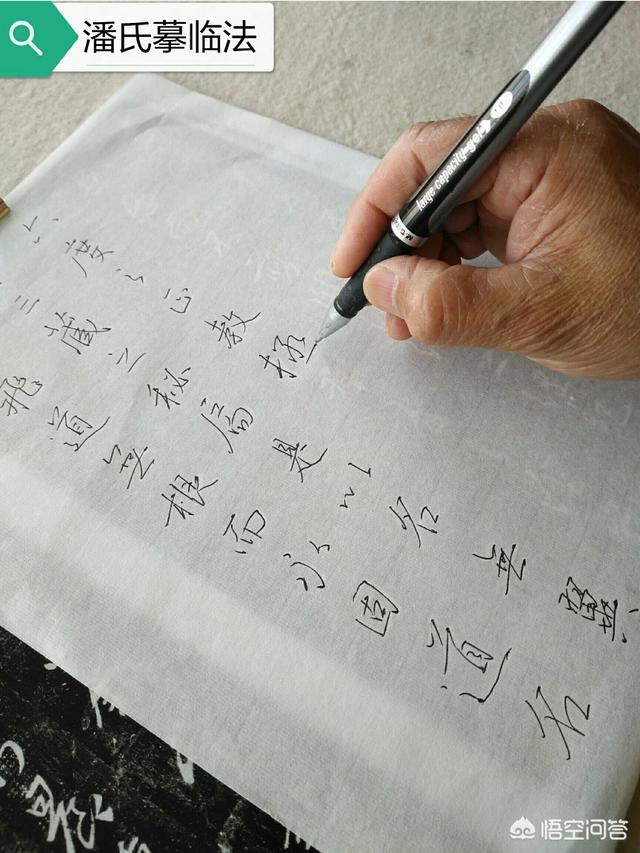 潘氏摹临法
large capacity-gel
六度之正教拯
三藏之秘扃是以名無翼
飛道無根而永固道名
悟空问答